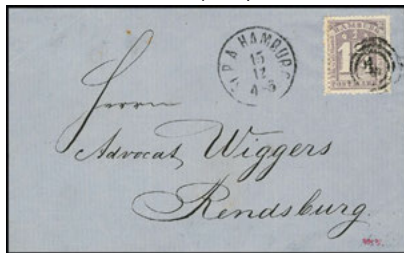 HAMBURG
15
12
4-5
HAMBURG
Herrn
Advocat Wiggers
Rendsburg.